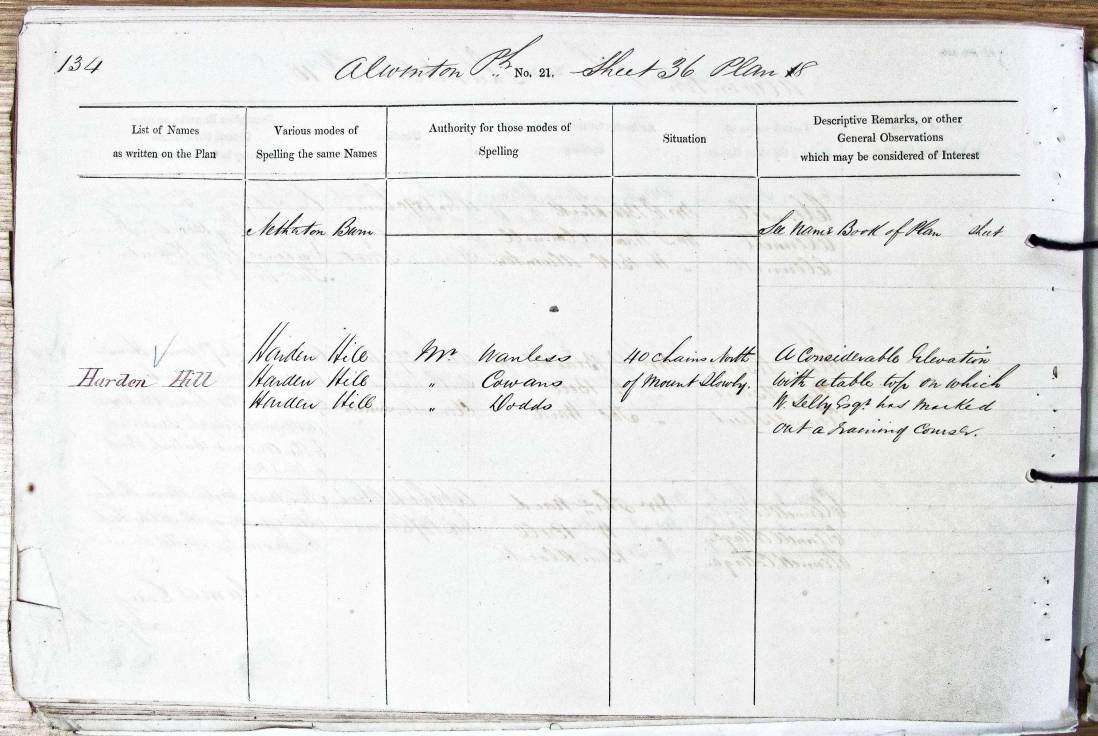 134
Alwinton Ph. No. 21. Sheet 36 Plan 8
List of Names
as written on the Plan
Various modes of
Spelling the same Names
Authority for those modes of
Spelling
Situation
Descriptive Remarks, or other
General Observations
which may be considered of Interest
Netherton Burn
See Name Book of Plan Sheet
Harden Hill
Harden Hill
Harden Hill
Harden Hill
Mr. Wanless
" Cowans
" Dodds
40 chains North
of Mount Slowby.
A Considerable Elevation
With a table top on which
W. Selby Esqr. has marked
out a Training Course.